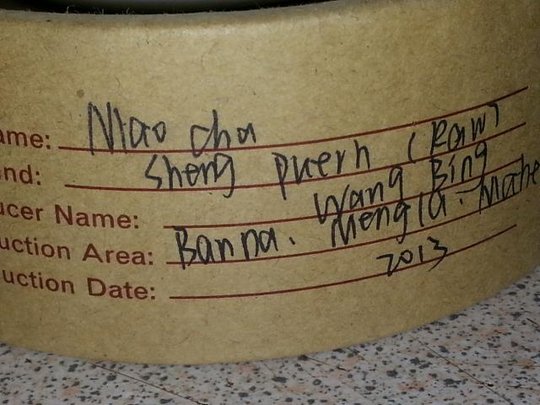 ame: Mao cha
nd: Sheng puerh (Raw)
ucer Name: Wang Bing
uction Area: Banna. Mengla. Mahe
uction Date: 2013